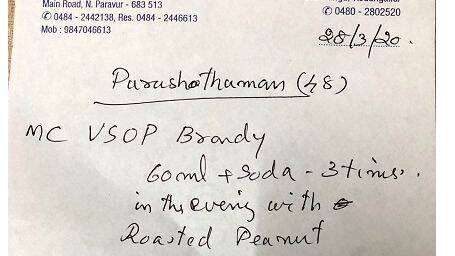 Main Road, N. Paravur - 683 513
✆ 0484 - 2442138, Res. 0484 - 2446613
Mob : 9847046613
✆ 0480 - 2802520
28/3/20.
Purushothaman (48)
MC VSOP Brandy
60ml + Soda - 3 times.
in the evening with
Roasted Peanut